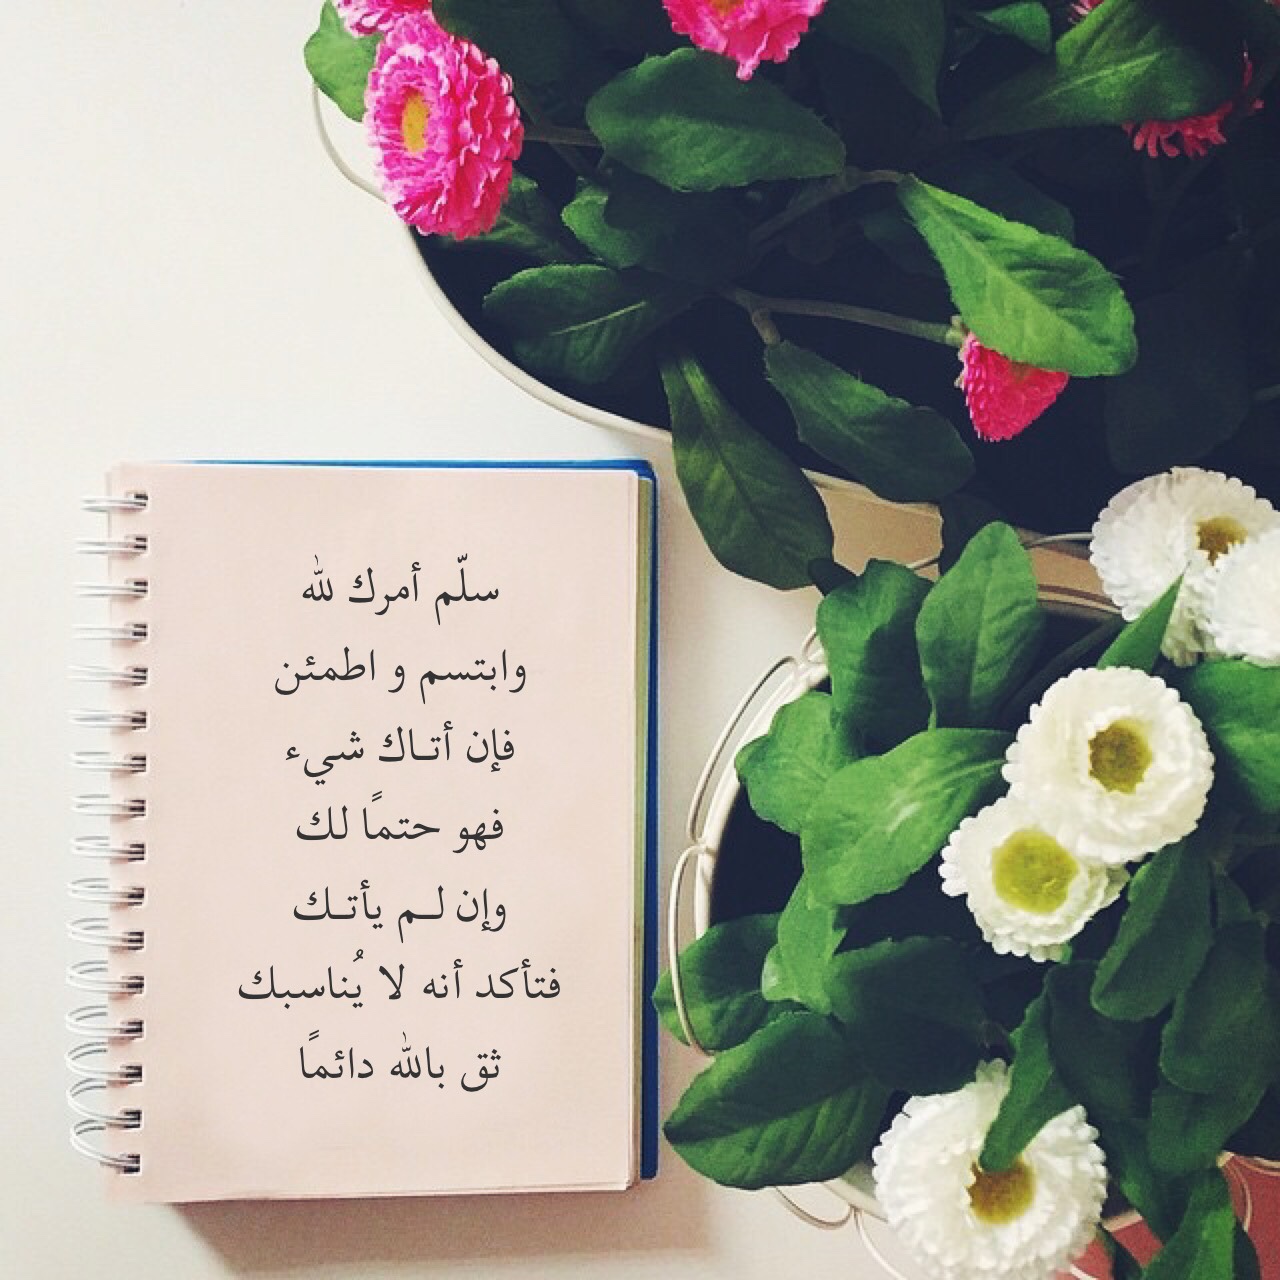 سلّم أمرك لله
وابتسم و اطمئن
فإن أتـاك شيء
فهو حتمًا لك
وإن لـم يأتـك
فتأكد أنه لا يُناسبك
ثق بالله دائمًا